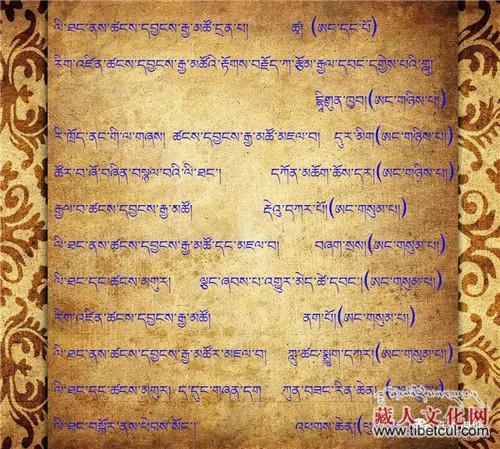 ལི་ཐང་ནས་ཚངས་དབྱངས་རྒྱ་མཚོ་དྲན་པ། ཚྭ། (ཨང་དང་པོ)
རིག་འཛིན་ཚངས་དབྱངས་རྒྱ་མཚོའི་རྟོགས་བརྗོད་ཀ་རྩོམ་རྒྱལ་དབང་དགྱེས་པའི་གླུ།
(ཨང་གཉིས་པ།)
རི་ཁྲོད་ནང་གི་ལ་གཞས། ཚངས་དབྱངས་རྒྱ་མཚོ་མཇལ་བ། དུར་མིག(ཨང་གཉིས་པ།)
ཚོར་བ་ཞོ་བཞིན་བསྙལ་བའི་ལི་ཐང་། དཀོན་མཆོག་ཆོས་དར།(ཨང་གཉིས་པ།)
རྒྱལ་བ་ཚངས་དབྱངས་རྒྱ་མཚོ། རྡེའུ་དཀར་པོ།(ཨང་གསུམ་པ།)
ལི་ཐང་ནས་ཚངས་དབྱངས་རྒྱ་མཚོ་དང་མཇལ་བ། བཞག་སྲས།(ཨང་གསུམ་པ།)
ལི་ཐང་དང་ཚངས་མགུར། ལྕང་ཞབས་པ་འགྱུར་མེད་ཚེ་དབང་།(ཨང་གསུམ་པ།)
རིག་འཛིན་ཚངས་དབྱངས་རྒྱ་མཚོ། ནག་པོ།(ཨང་གསུམ་པ།)
ལི་ཐང་ནས་ཚངས་དབྱངས་རྒྱ་མཚོར་མཇལ་བ། ཀླུ་ཚང་སྨྱུག་དཀར།(ཨང་གསུམ་པ།)
ལི་ཐང་དང་ཚངས་མགུར། ད་དུང་གཞན་དག ཀུན་བཟང་རིན་ཆེན།
ལི་ཐང་བསྐོར་ནས་ཕེབས་སོང་། འཕགས་ཆེན།
藏人文化网
www.tibetcul.com